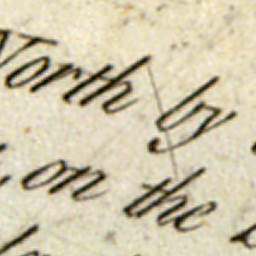 North by
on the